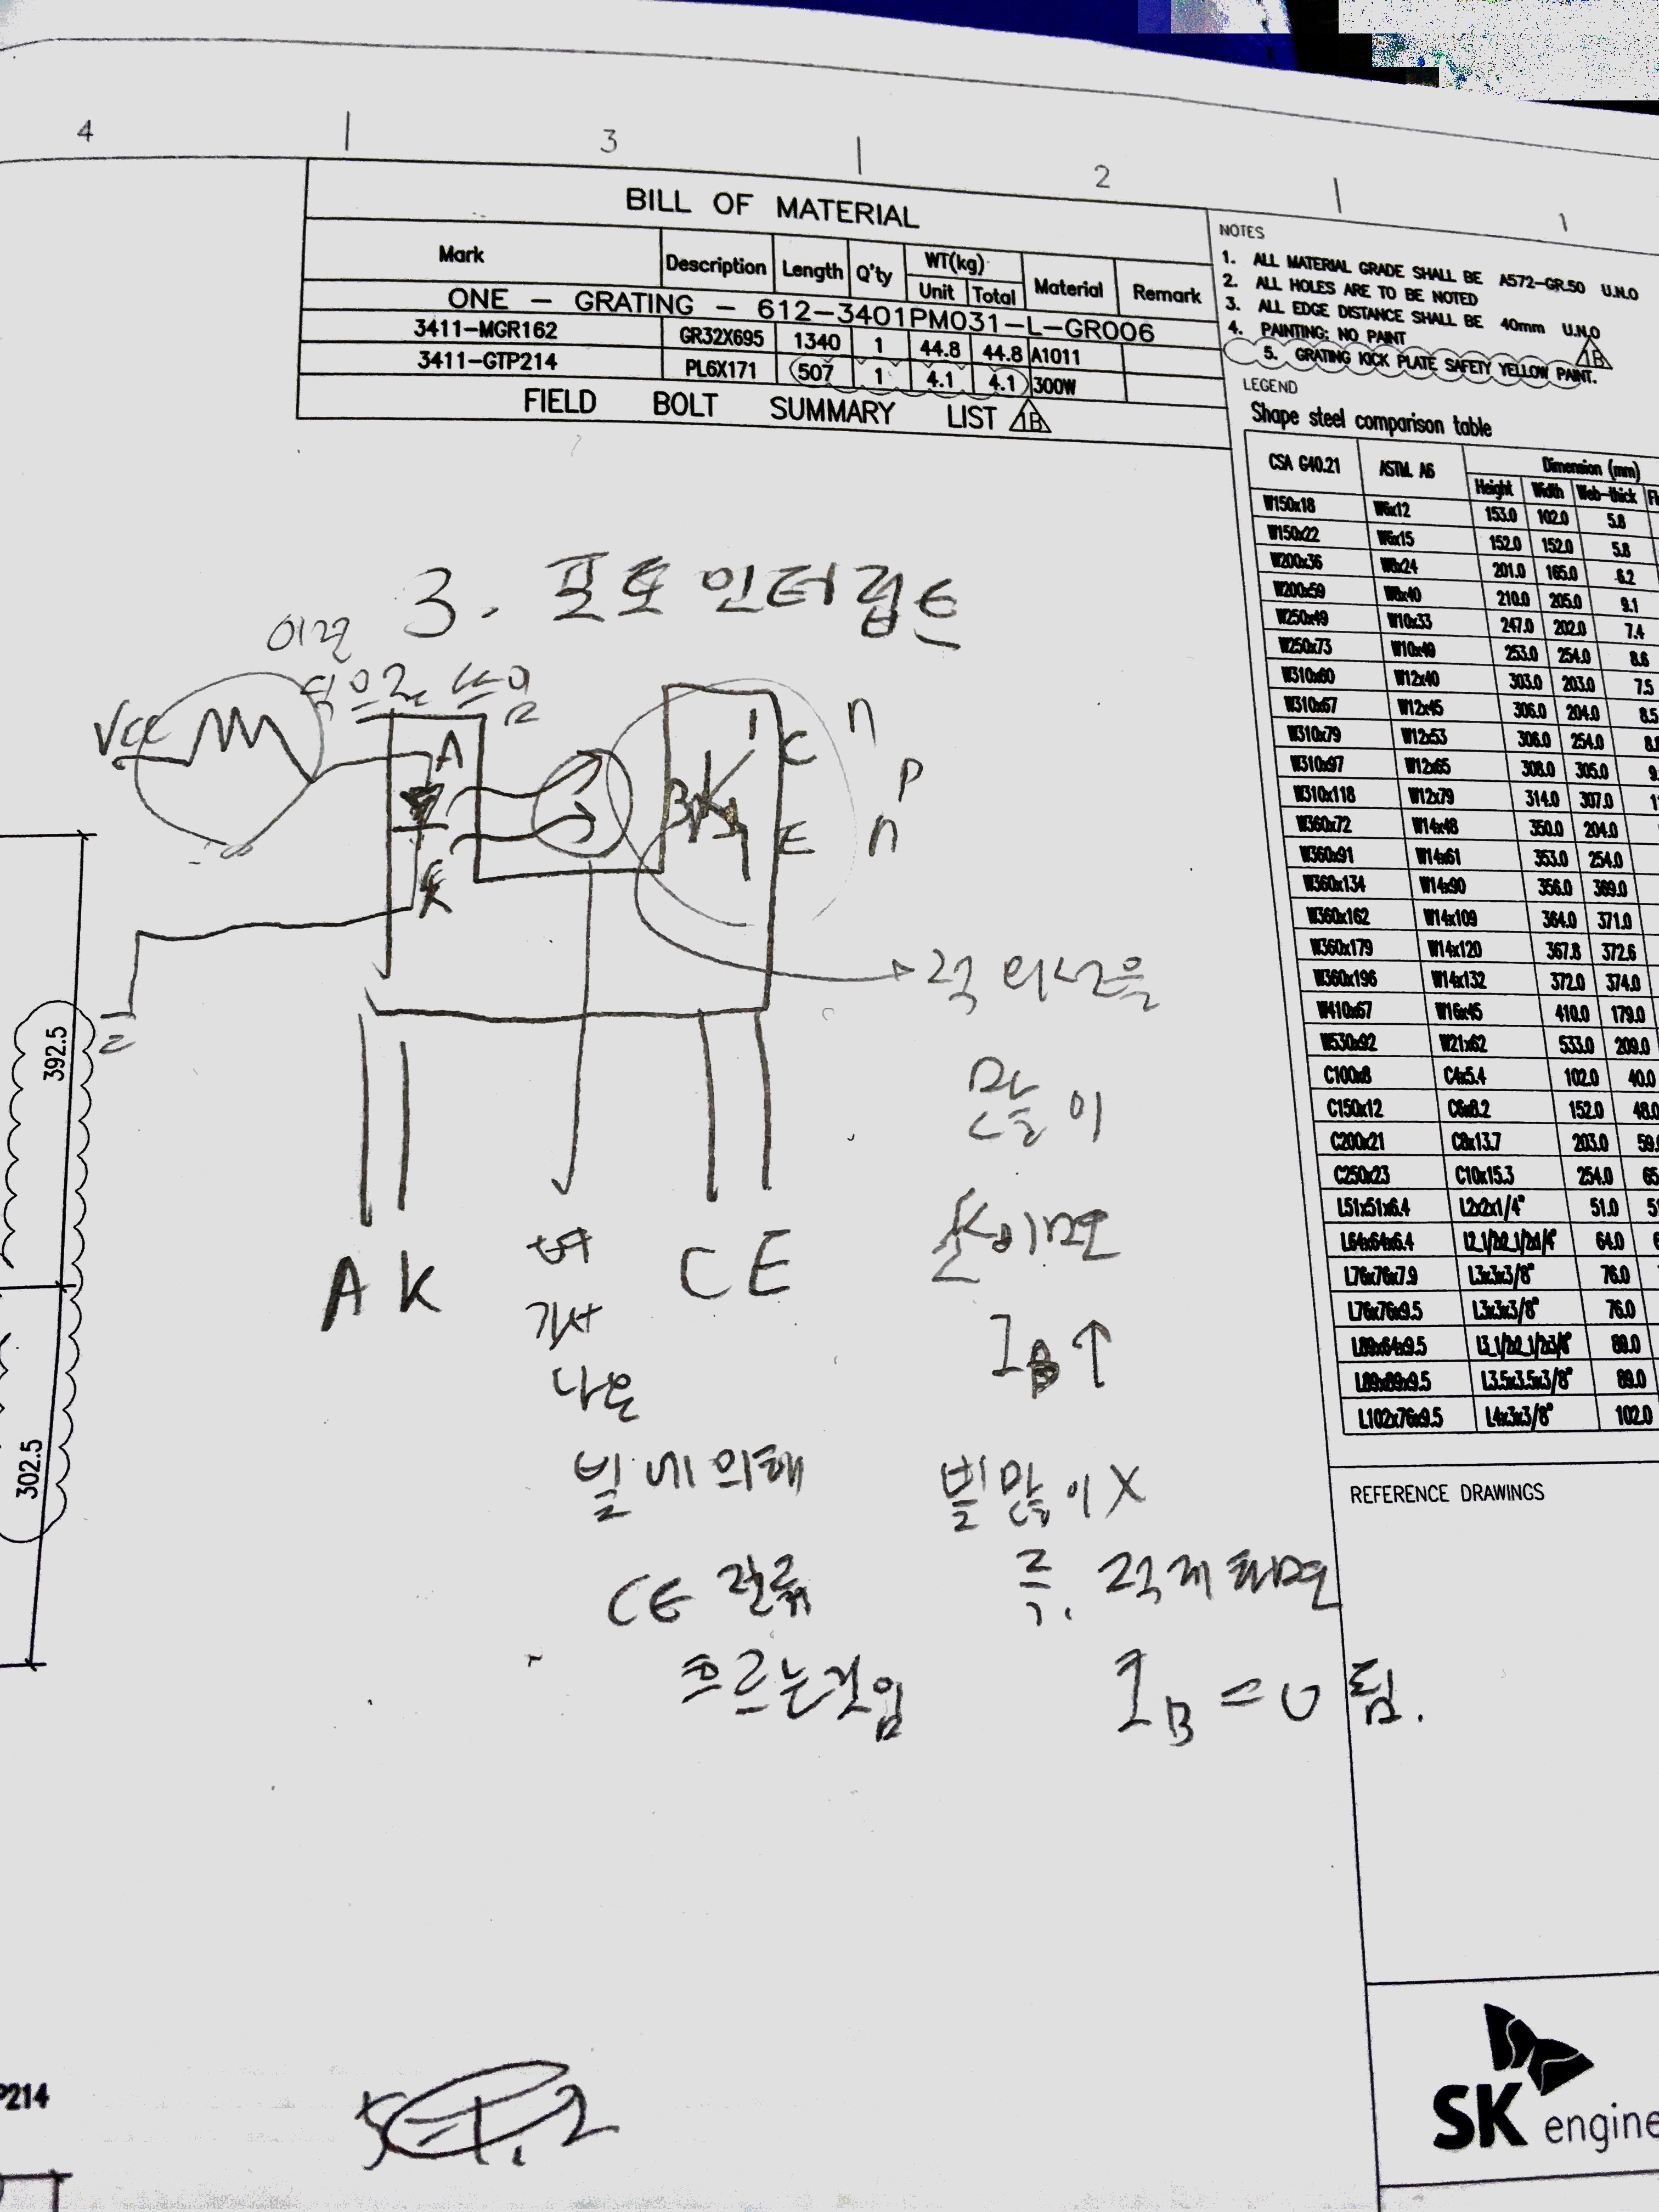 4 3 2 1
BILL OF MATERIAL
Mark Description Length Q'ty WT(kg) Unit Total Material Remark
ONE - GRATING - 612-3401PM031-L-GR006
3411-MGR162 GR32X695 1340 1 44.8 44.8 A1011
3411-GTP214 PL6X171 507 1 4.1 4.1 300W
FIELD BOLT SUMMARY LIST 1B
NOTES
1. ALL MATERIAL GRADE SHALL BE A572-GR.50 U.N.O
2. ALL HOLES ARE TO BE NOTED
3. ALL EDGE DISTANCE SHALL BE 40mm U.N.O
4. PAINTING: NO PAINT
5. GRATING KICK PLATE SAFETY YELLOW PAINT.
1B
LEGEND
Shape steel comparison table
CSA G40.21 ASTM. A6 Dimension (mm)
Height Width Web-thick
W150x18 W6x12 153.0 102.0 5.8
W150x22 W6x15 152.0 152.0 5.8
W200x36 W8x24 201.0 165.0 6.2
W200x59 W8x40 210.0 205.0 9.1
W250x49 W10x33 247.0 202.0 7.4
W250x73 W10x49 253.0 254.0 8.6
W310x60 W12x40 303.0 203.0 7.5
W310x67 W12x45 306.0 204.0 8.5
W310x79 W12x53 306.0 254.0
W310x97 W12x65 308.0 305.0
W310x118 W12x79 314.0 307.0
W360x72 W14x48 350.0 204.0
W360x91 W14x61 353.0 254.0
W360x134 W14x90 356.0 369.0
W360x162 W14x109 364.0 371.0
W360x179 W14x120 367.8 372.6
W360x196 W14x132 372.0 374.0
W410x67 W16x45 410.0 179.0
W530x92 W21x62 533.0 209.0
C100x8 C4x5.4 102.0 40.0
C150x12 C6x8.2 152.0 48.0
C200x21 C8x13.7 203.0
C250x23 C10x15.3 254.0
L51x51x6.4 L2x2x1/4" 51.0
L64x64x6.4 L2_1/2x2_1/2x1/4" 64.0
L76x76x7.9 L3x3x3/8" 76.0
L76x76x9.5 L3x3x3/8" 76.0
L89x64x9.5 L3_1/2x2_1/2x3/8" 89.0
L89x89x9.5 L3.5x3.5x3/8" 89.0
L102x76x9.5 L4x3x3/8" 102.0
REFERENCE DRAWINGS
3. 포토인터럽트
이런
쓰임
Vcc
A
K
B
C n
p
E n
392.5
302.5
A K
C E
나온
빛에 의해
CE 전류
흐르는것임
적외선을
많이
쏘이면
IB↑
빛 많이 X
즉, 적게 하면
IB = 0 됨.
P214
SK engine